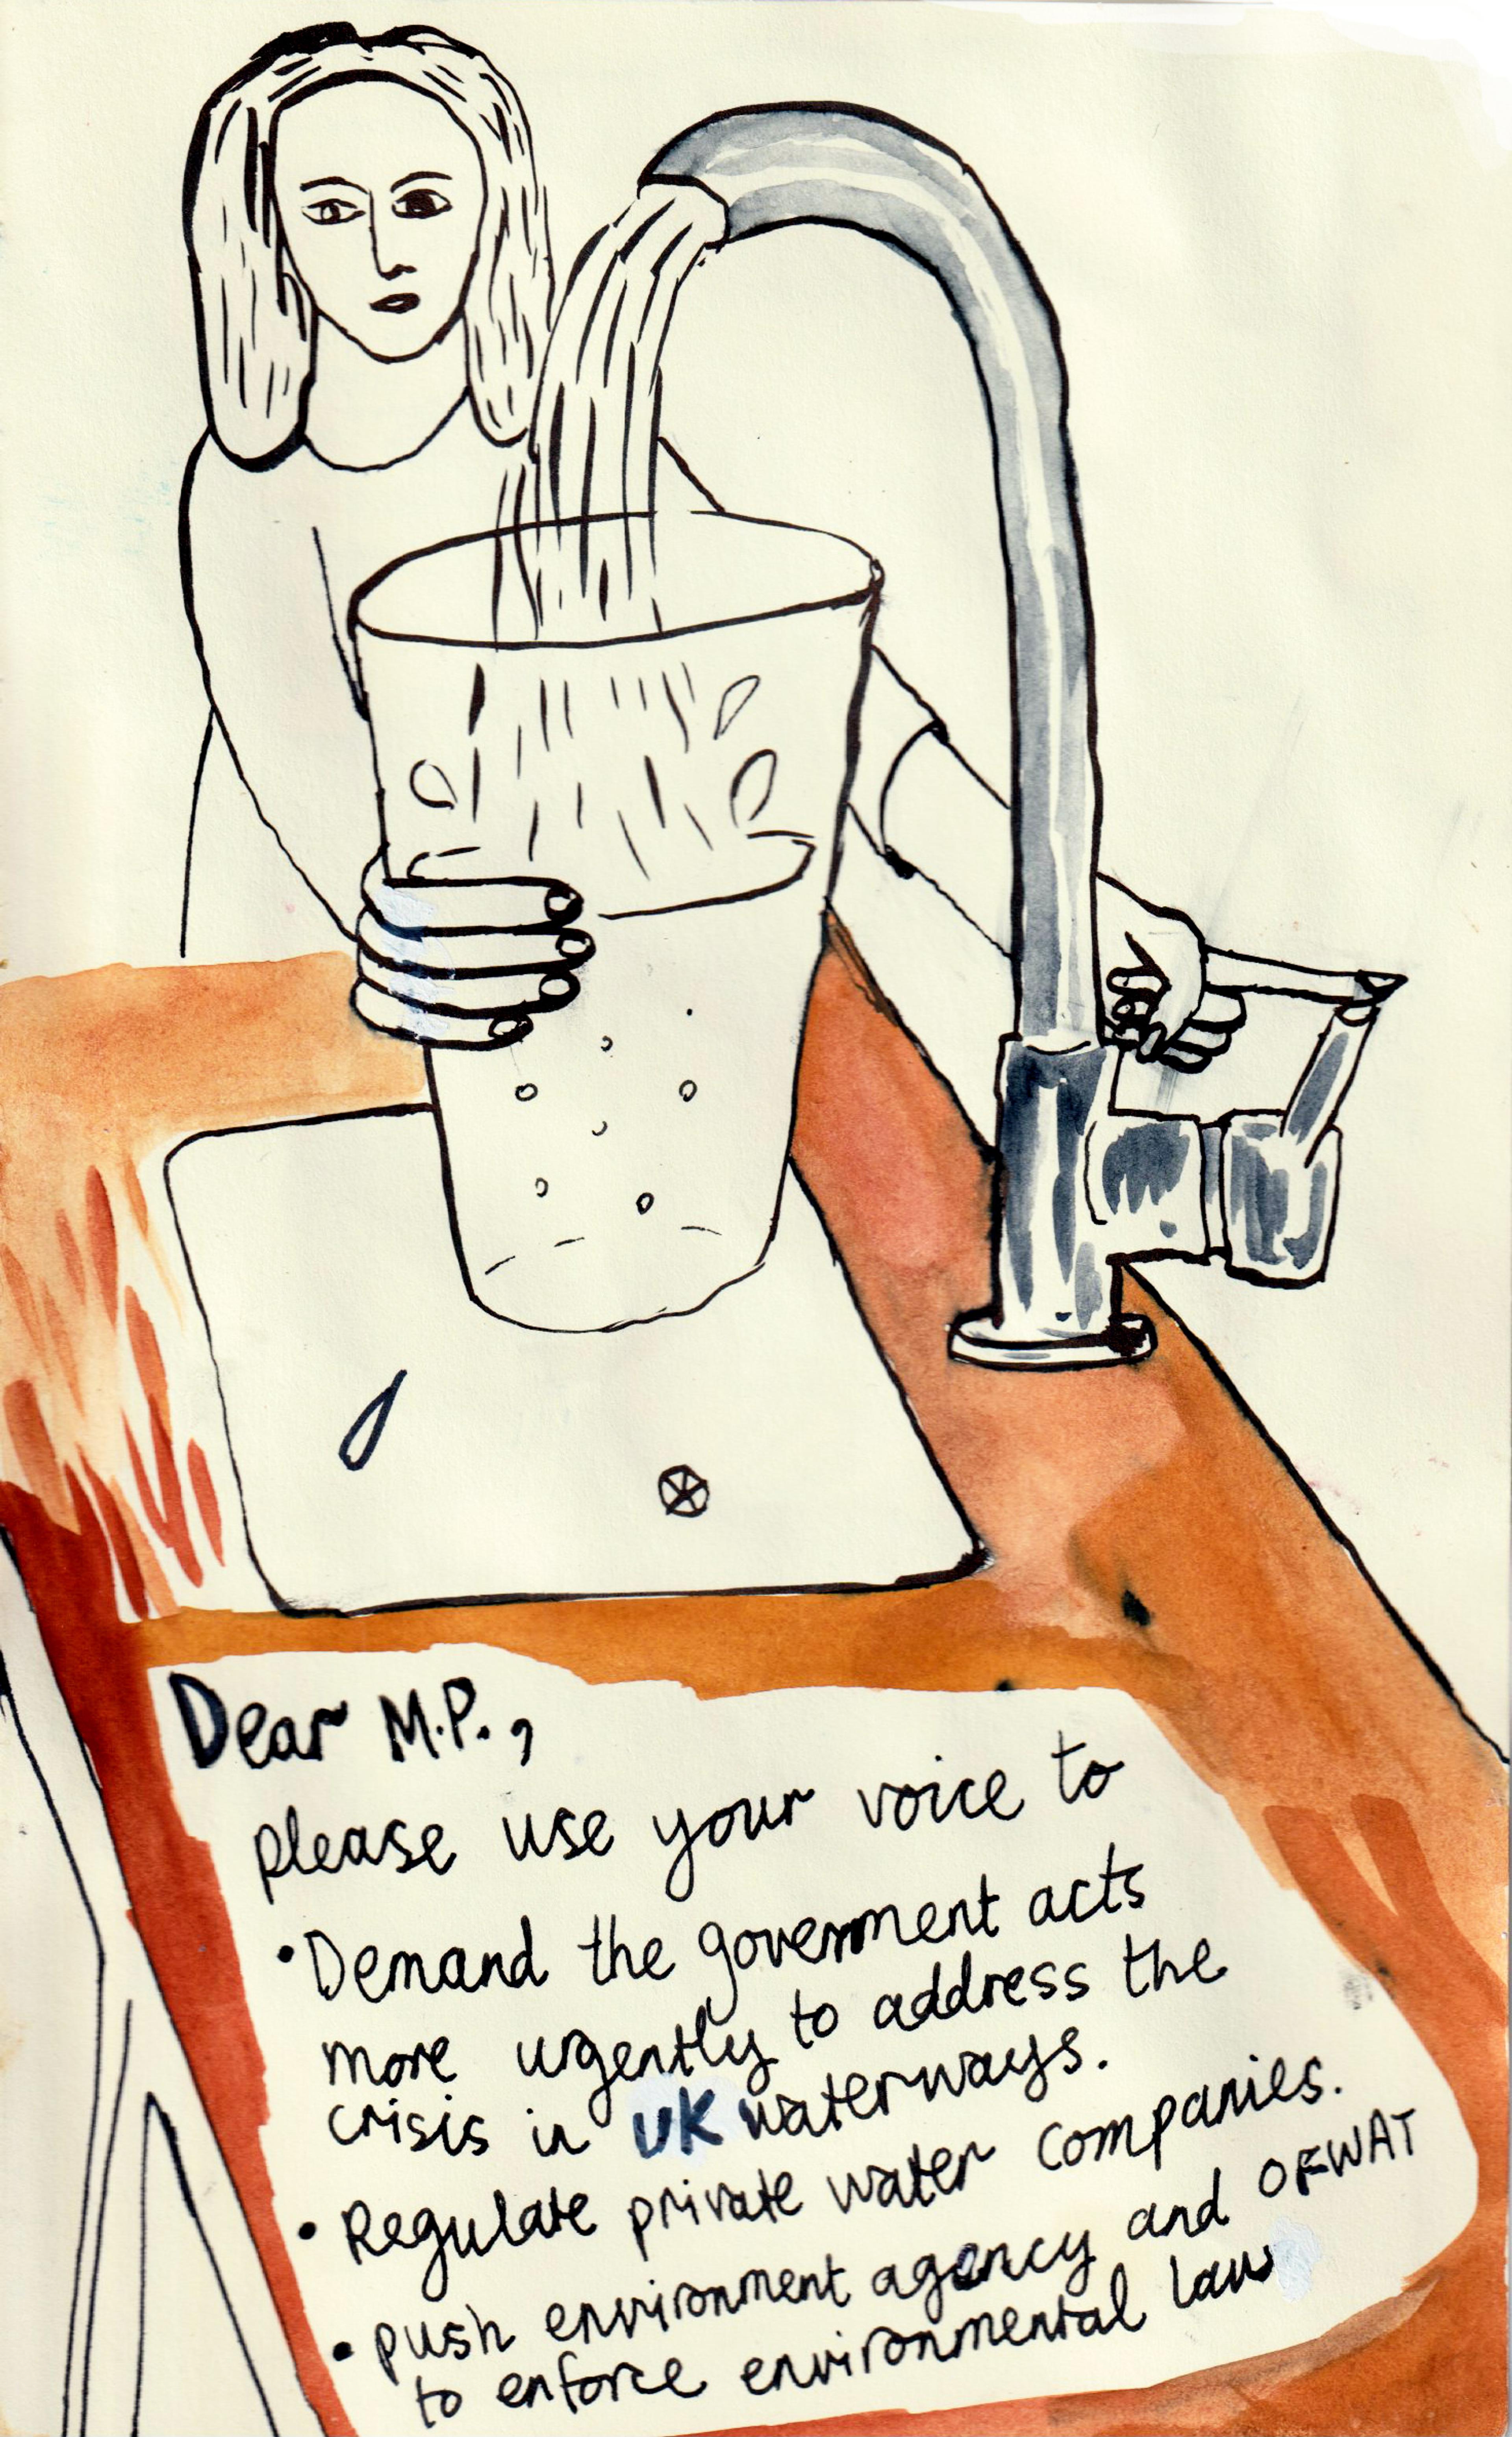 Dear M.P.,
please use your voice to
• Demand the government acts
more urgently to address the
crisis in UK waterways.
• Regulate private water companies.
• push environment agency and OFWAT
to enforce environmental law